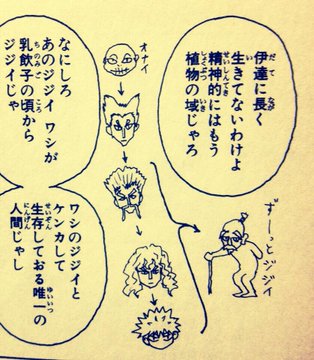 伊達に長く
生きてないわけよ
精神的にはもう
植物の域じゃろ
なにしろ
あのジジイ ワシが
乳飲子の頃から
ジジイじゃ
オナイ
ずーっとジジイ
ワシのジジイと
ケンカして
生存しておる唯一の
人間じゃし